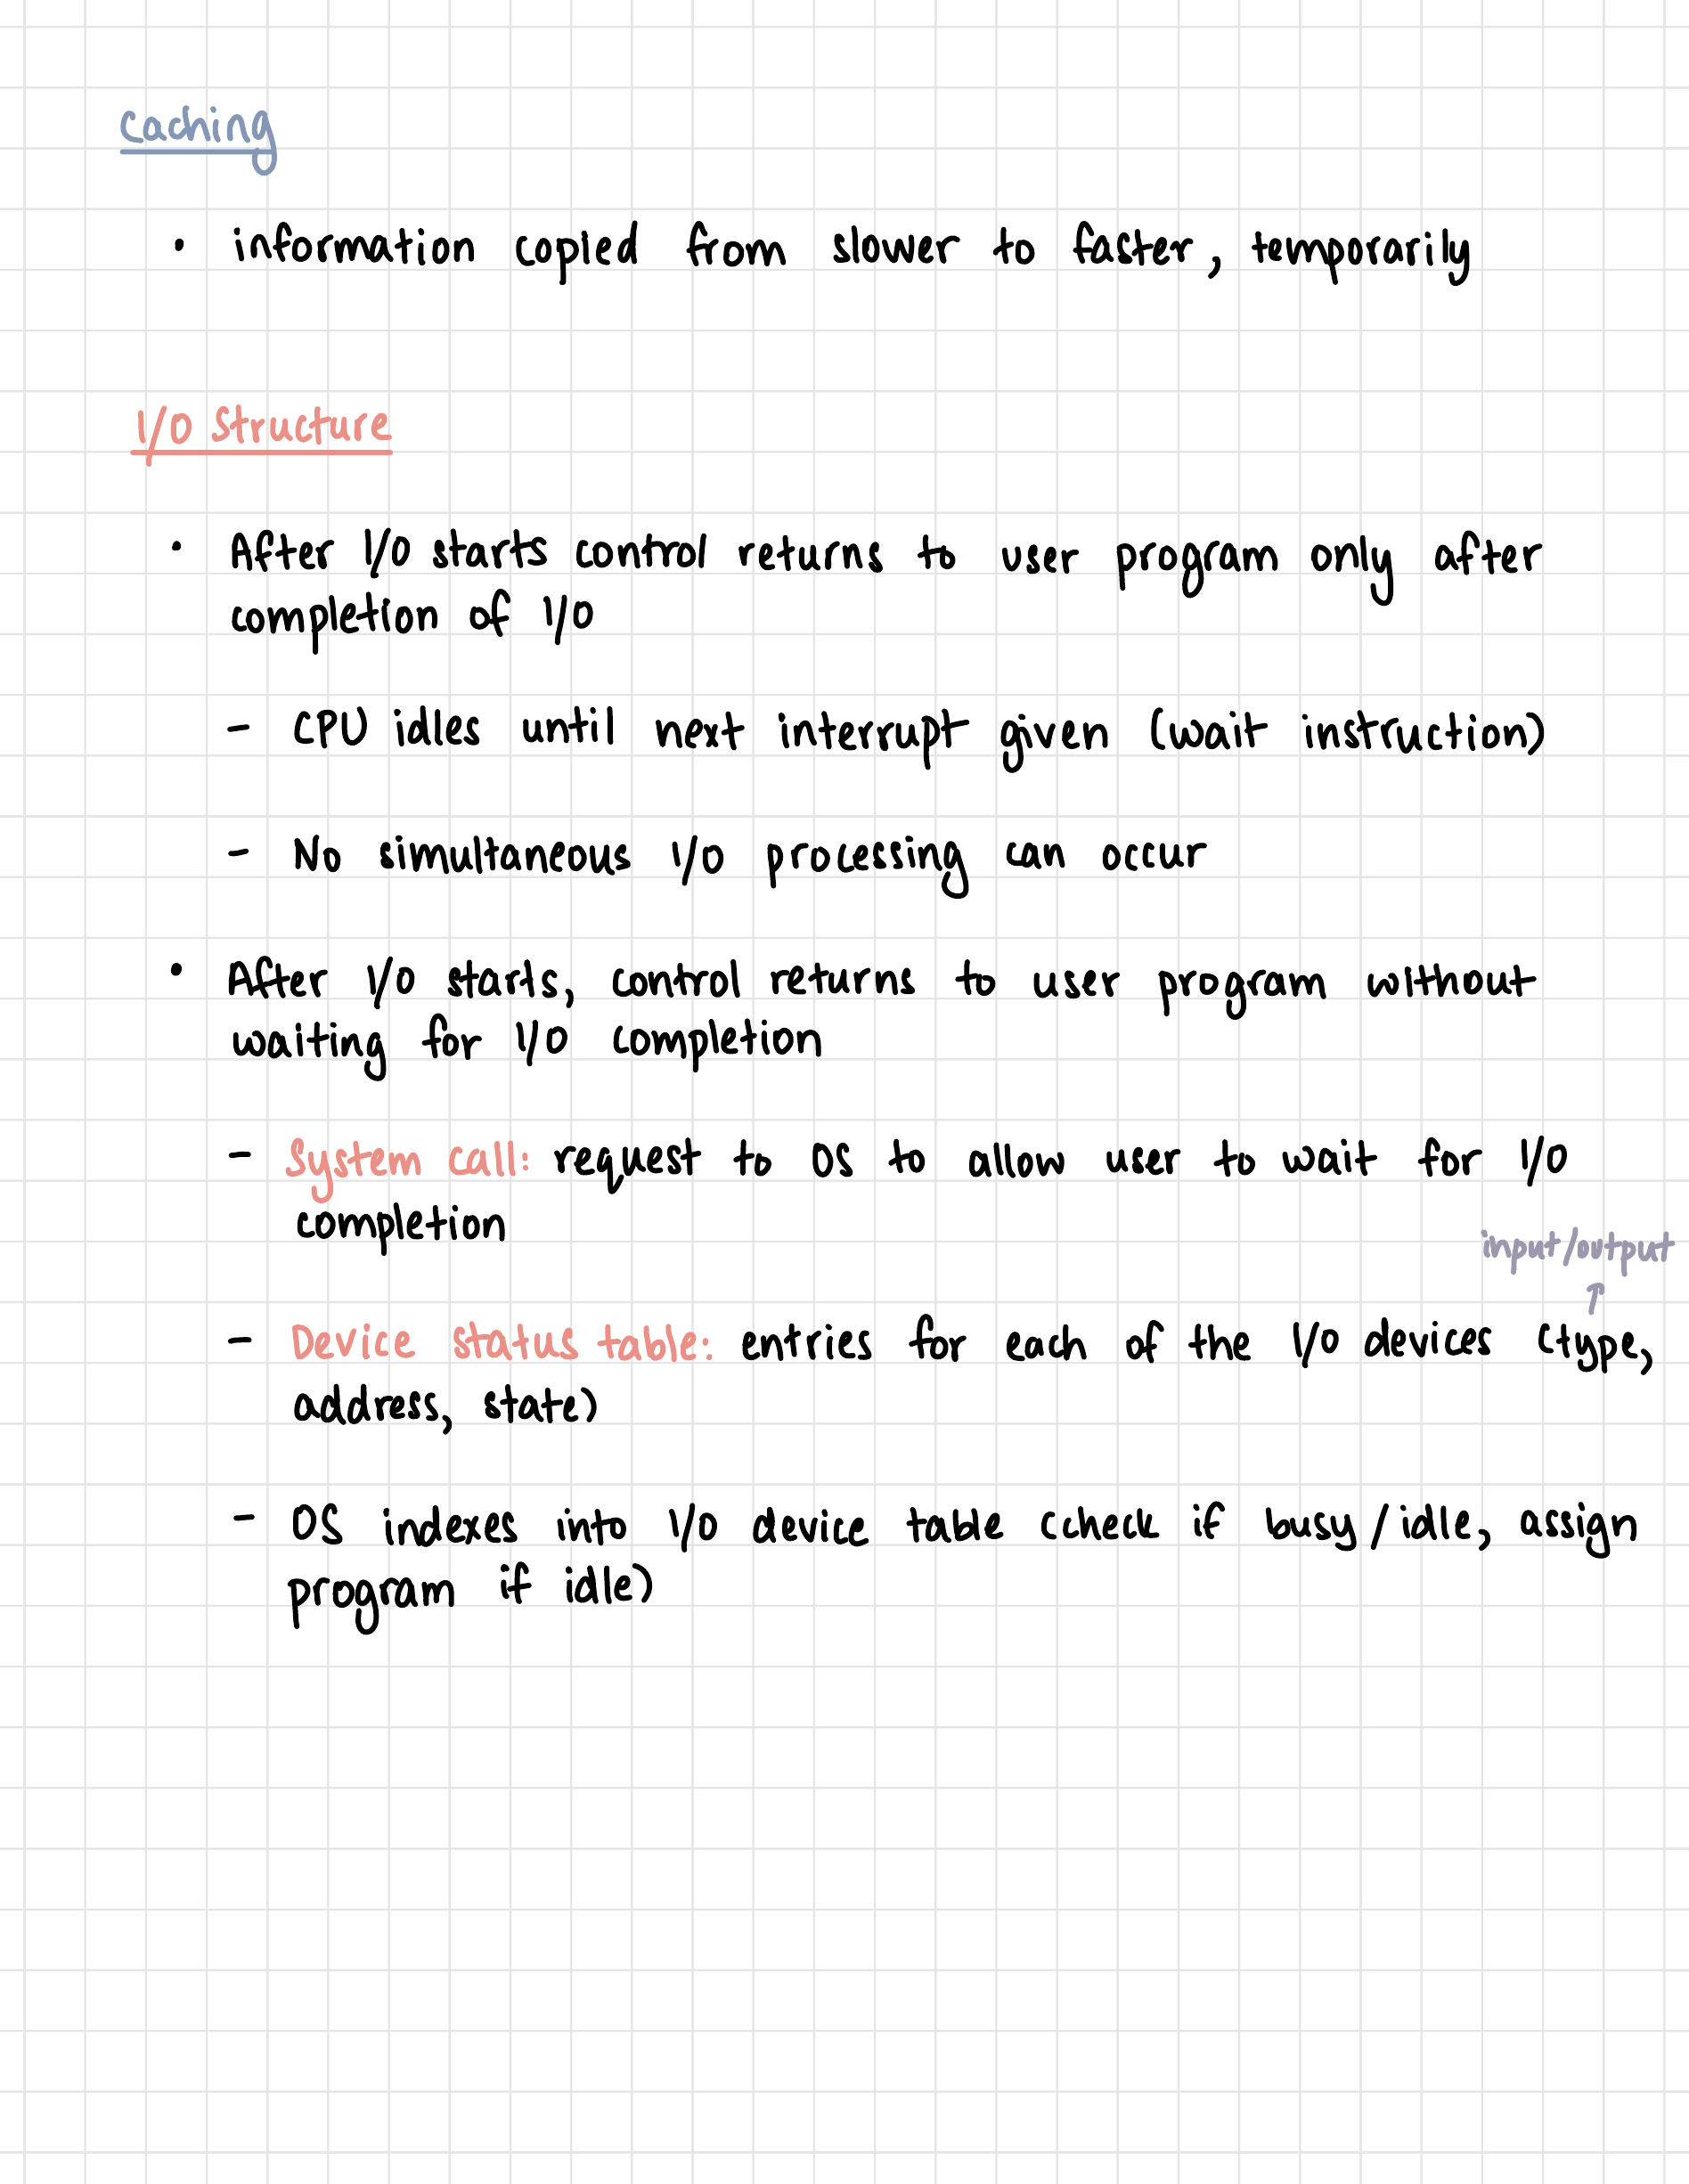 caching
• information copied from slower to faster, temporarily
I/O structure
• After I/O starts control returns to user program only after
completion of I/O
- CPU idles until next interrupt given (wait instruction)
- No simultaneous I/O processing can occur
• After I/O starts, control returns to user program without
waiting for I/O completion
- System call: request to OS to allow user to wait for I/O
completion
input/output
↑
- Device status table: entries for each of the I/O devices (type,
address, state)
- OS indexes into I/O device table (check if busy/idle, assign
program if idle)